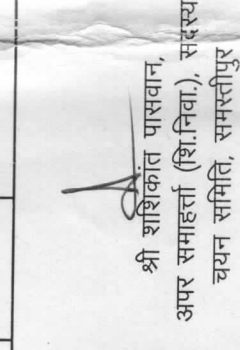 श्री शशिकांत पासवान,
अपर समाहर्त्ता (शि.निवा.), सदस्य
चयन समिति, समस्तीपुर